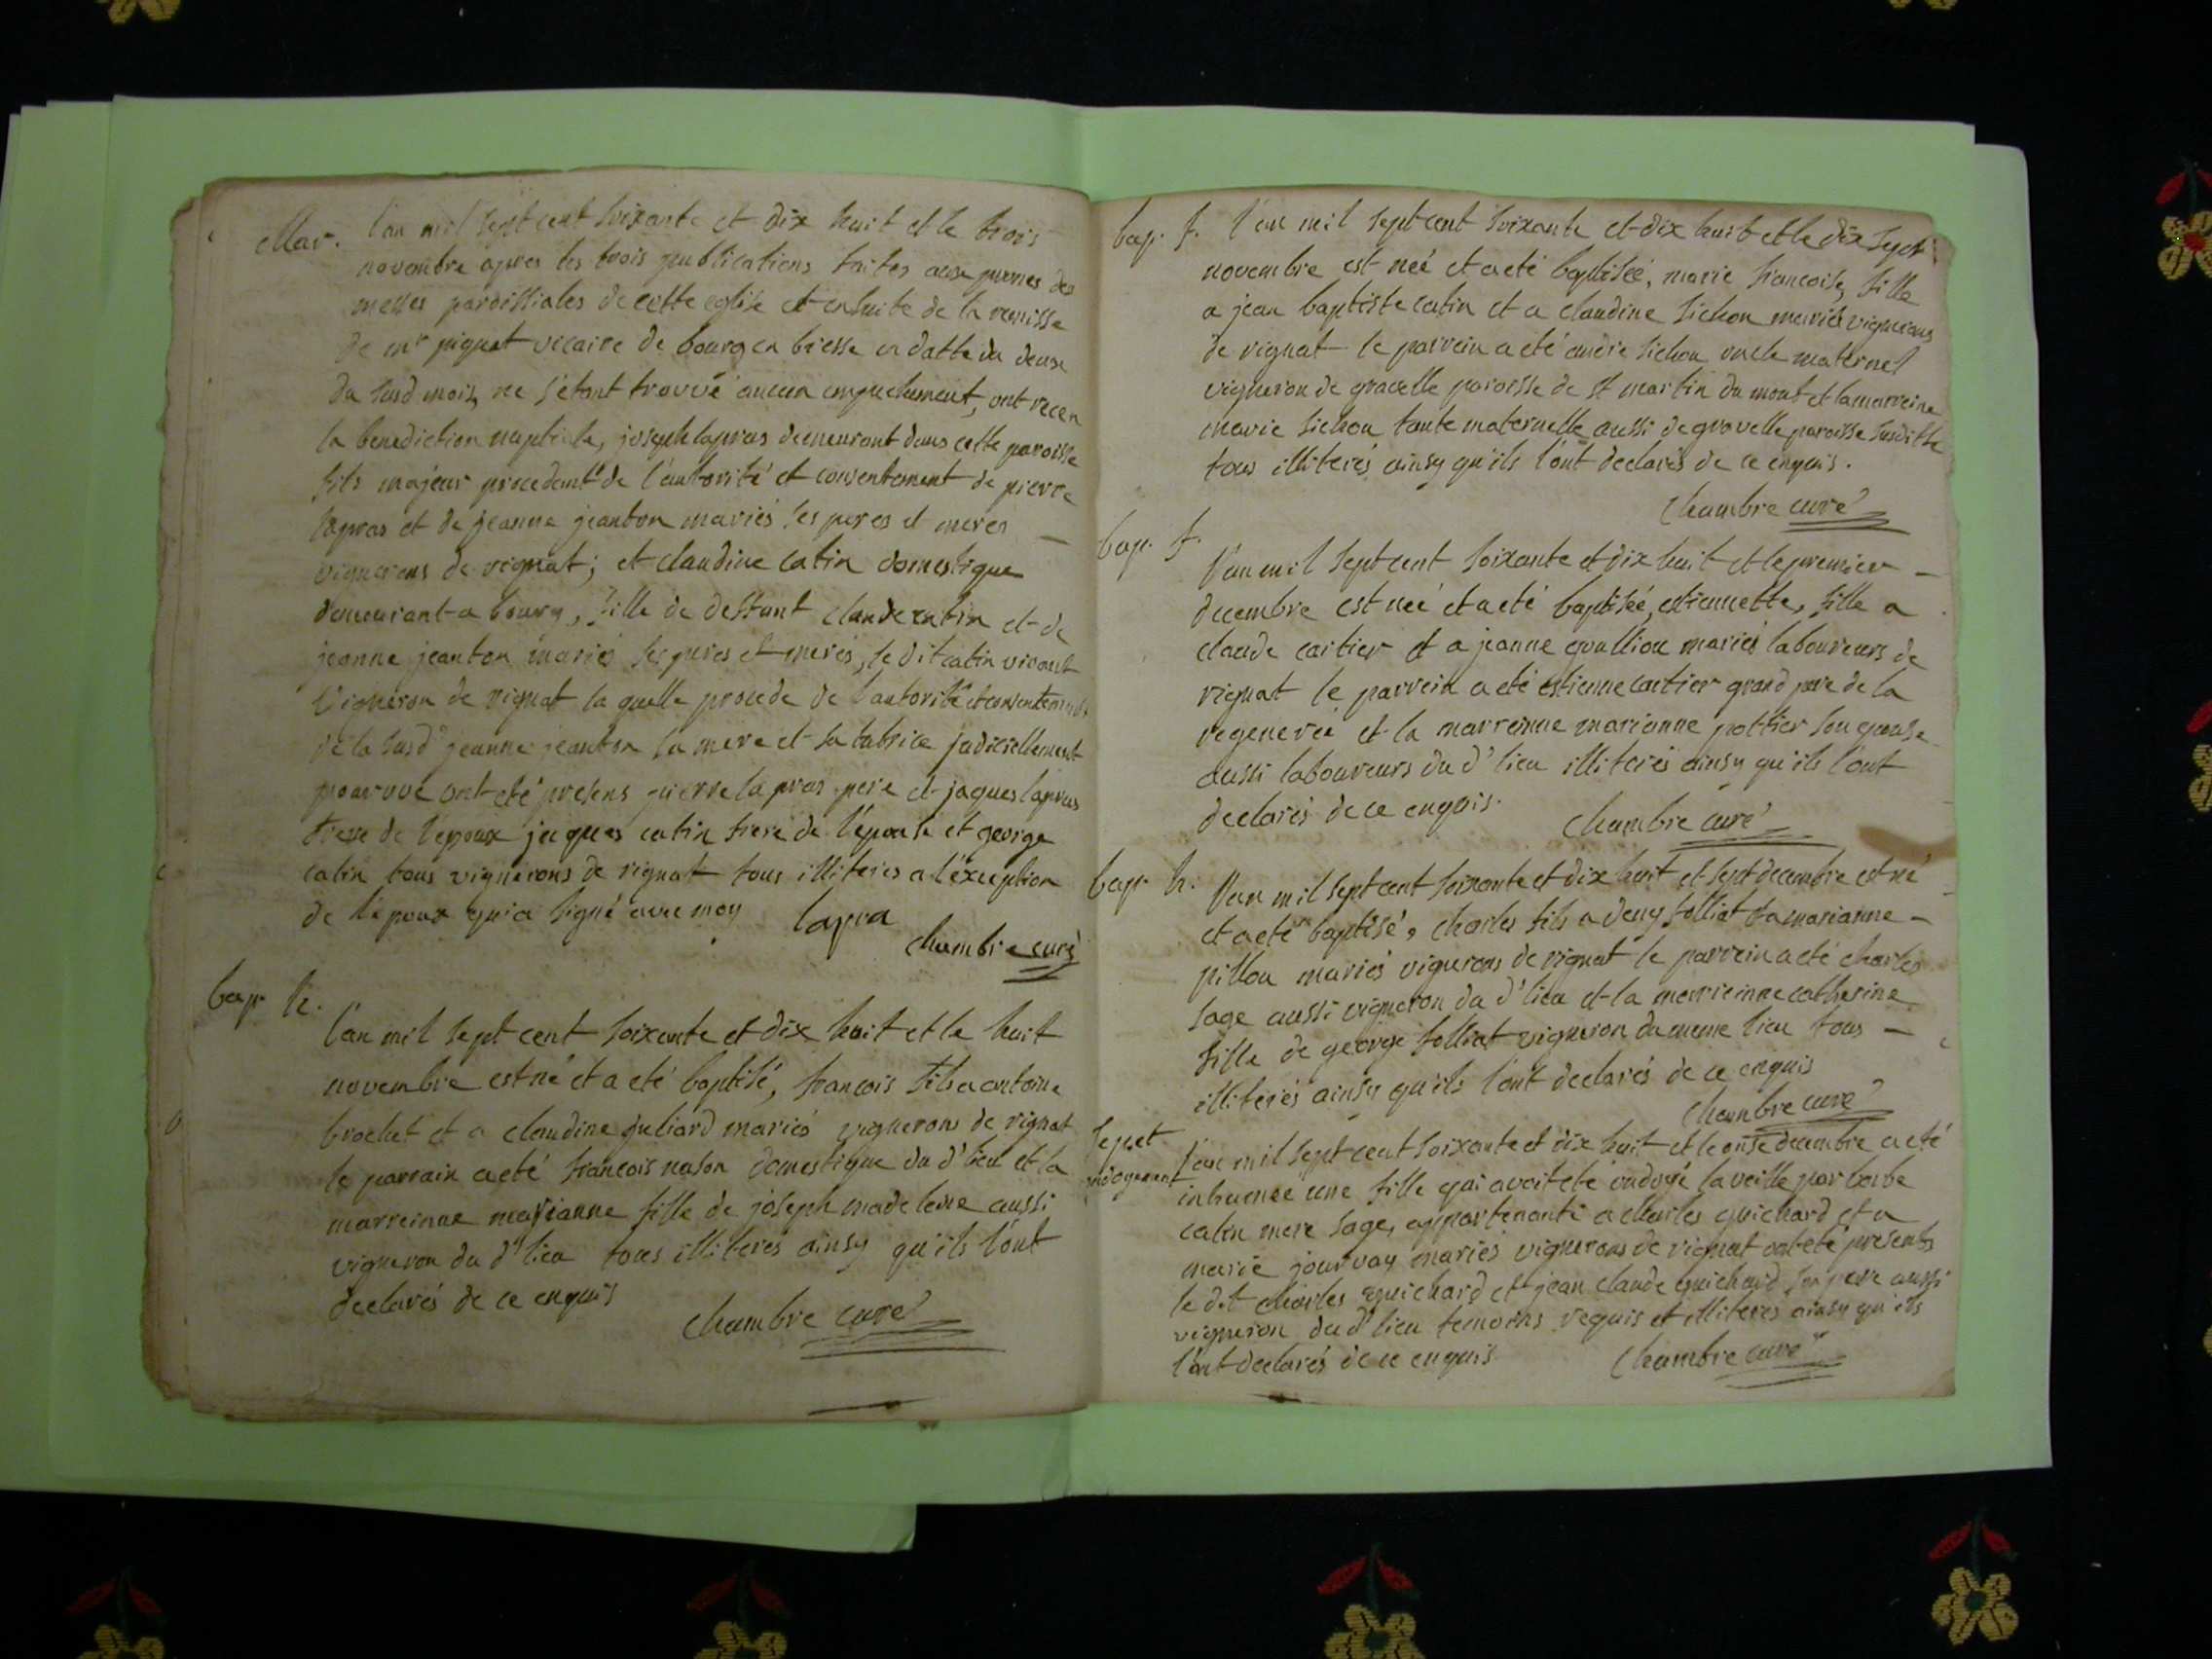 Mar.
l'an mil sept cent soixante et dix huit et le trois
novembre apres les trois publications faites aux prones des
messes paroissiales de cette eglise et ensuite de la remisse
de mr piquet vicaire de bourg en bresse en datte du deux
du susd mois, ne s'etant trouvé aucun empechement, ont recu
la benediction nuptiale, joseph lapras demeurant dans cette paroisse
fils majeur procedant de l'autorité et consentement de pierre
lapras et de jeanne jeanton mariés ses peres et meres
vignerons de rignat; et claudine catin domestique
demeurant a bourg, fille de deffunt claude catin et de
jeanne jeanton mariés ses peres et meres, le dit catin vivant
vigneron de rignat la quelle procede de l'autorité et consentement
de la susd jeanne jeanton sa mere et sa tutrice judiciellement
pourvue ont eté presens pierre lapras pere et jaques lapras
frere de l'epoux jaques catin frere de l'epouse et george
catin tous vignerons de rignat tous illiteres a l'exception
de l'epoux qui a signé avec moy
lapra
chambre curé
bap. h.
l'an mil sept cent soixante et dix huit et le huit
novembre est né et a eté baptisé, francois fils a antoine
brochet et a claudine juliard mariés vignerons de rignat
le parrain a eté francois nason domestique du d' lieu et la
marreinne marianne fille de joseph madeleine aussi
vigneron du d' lieu tous illiterés ainsy qu'ils l'ont
declarés de ce enquis
chambre curé
bap. f.
l'an mil sept cent soixante et dix huit et le dix sept
novembre est neé et a eté baptiseé, marie francoise, fille
a jean baptiste catin et a claudine sichon mariés vignerons
de rignat le parrein a eté andre sichon oncle maternel
vigneron de gravelle paroisse de st martin du mont et la marreine
marie sichon tante maternelle aussi de gravelle paroisse susditte
tous illiterés ainsy qu'ils l'ont declarés de ce enquis.
chambre curé
bap. f.
l'an mil sept cent soixante et dix huit et le premier
decembre est neé et a eté baptiseé, estiennette, fille a
claude cartier et a jeanne gualliou mariés laboureurs de
rignat le parrein a eté estienne cartier grand pere de la
regenereé et la marreinne marianne pottier son epouse
aussi laboureurs du d' lieu illiterés ainsy qu'ils l'ont
declarés de ce enquis.
chambre curé
bap. h.
l'an mil sept cent soixante et dix huit et sept decembre est né
et a eté baptisé, charles fils a deny folliat et a marianne
pillon mariés vignerons de rignat le parrein a eté charles
sage aussi vigneron du d' lieu et la marreinne catherine
fille de george folliat vigneron du meme lieu tous
illiterés ainsy qu'ils l'ont declarés de ce enquis
chambre curé
sep et
ondoyement
l'an mil sept cent soixante et dix huit et le onse decembre a eté
inhumee une fille qui avoit eté ondoyé la veille par barbe
catin mere sage, appartenante a charles guichard et a
marie jourvay mariés vignerons de rignat ont eté presents
le dit charles guichard et jean claude guichard son pere aussi
vigneron du d' lieu temoins requis et illiteres ainsy qu'ils
l'ont declarés de ce enquis
chambre curé